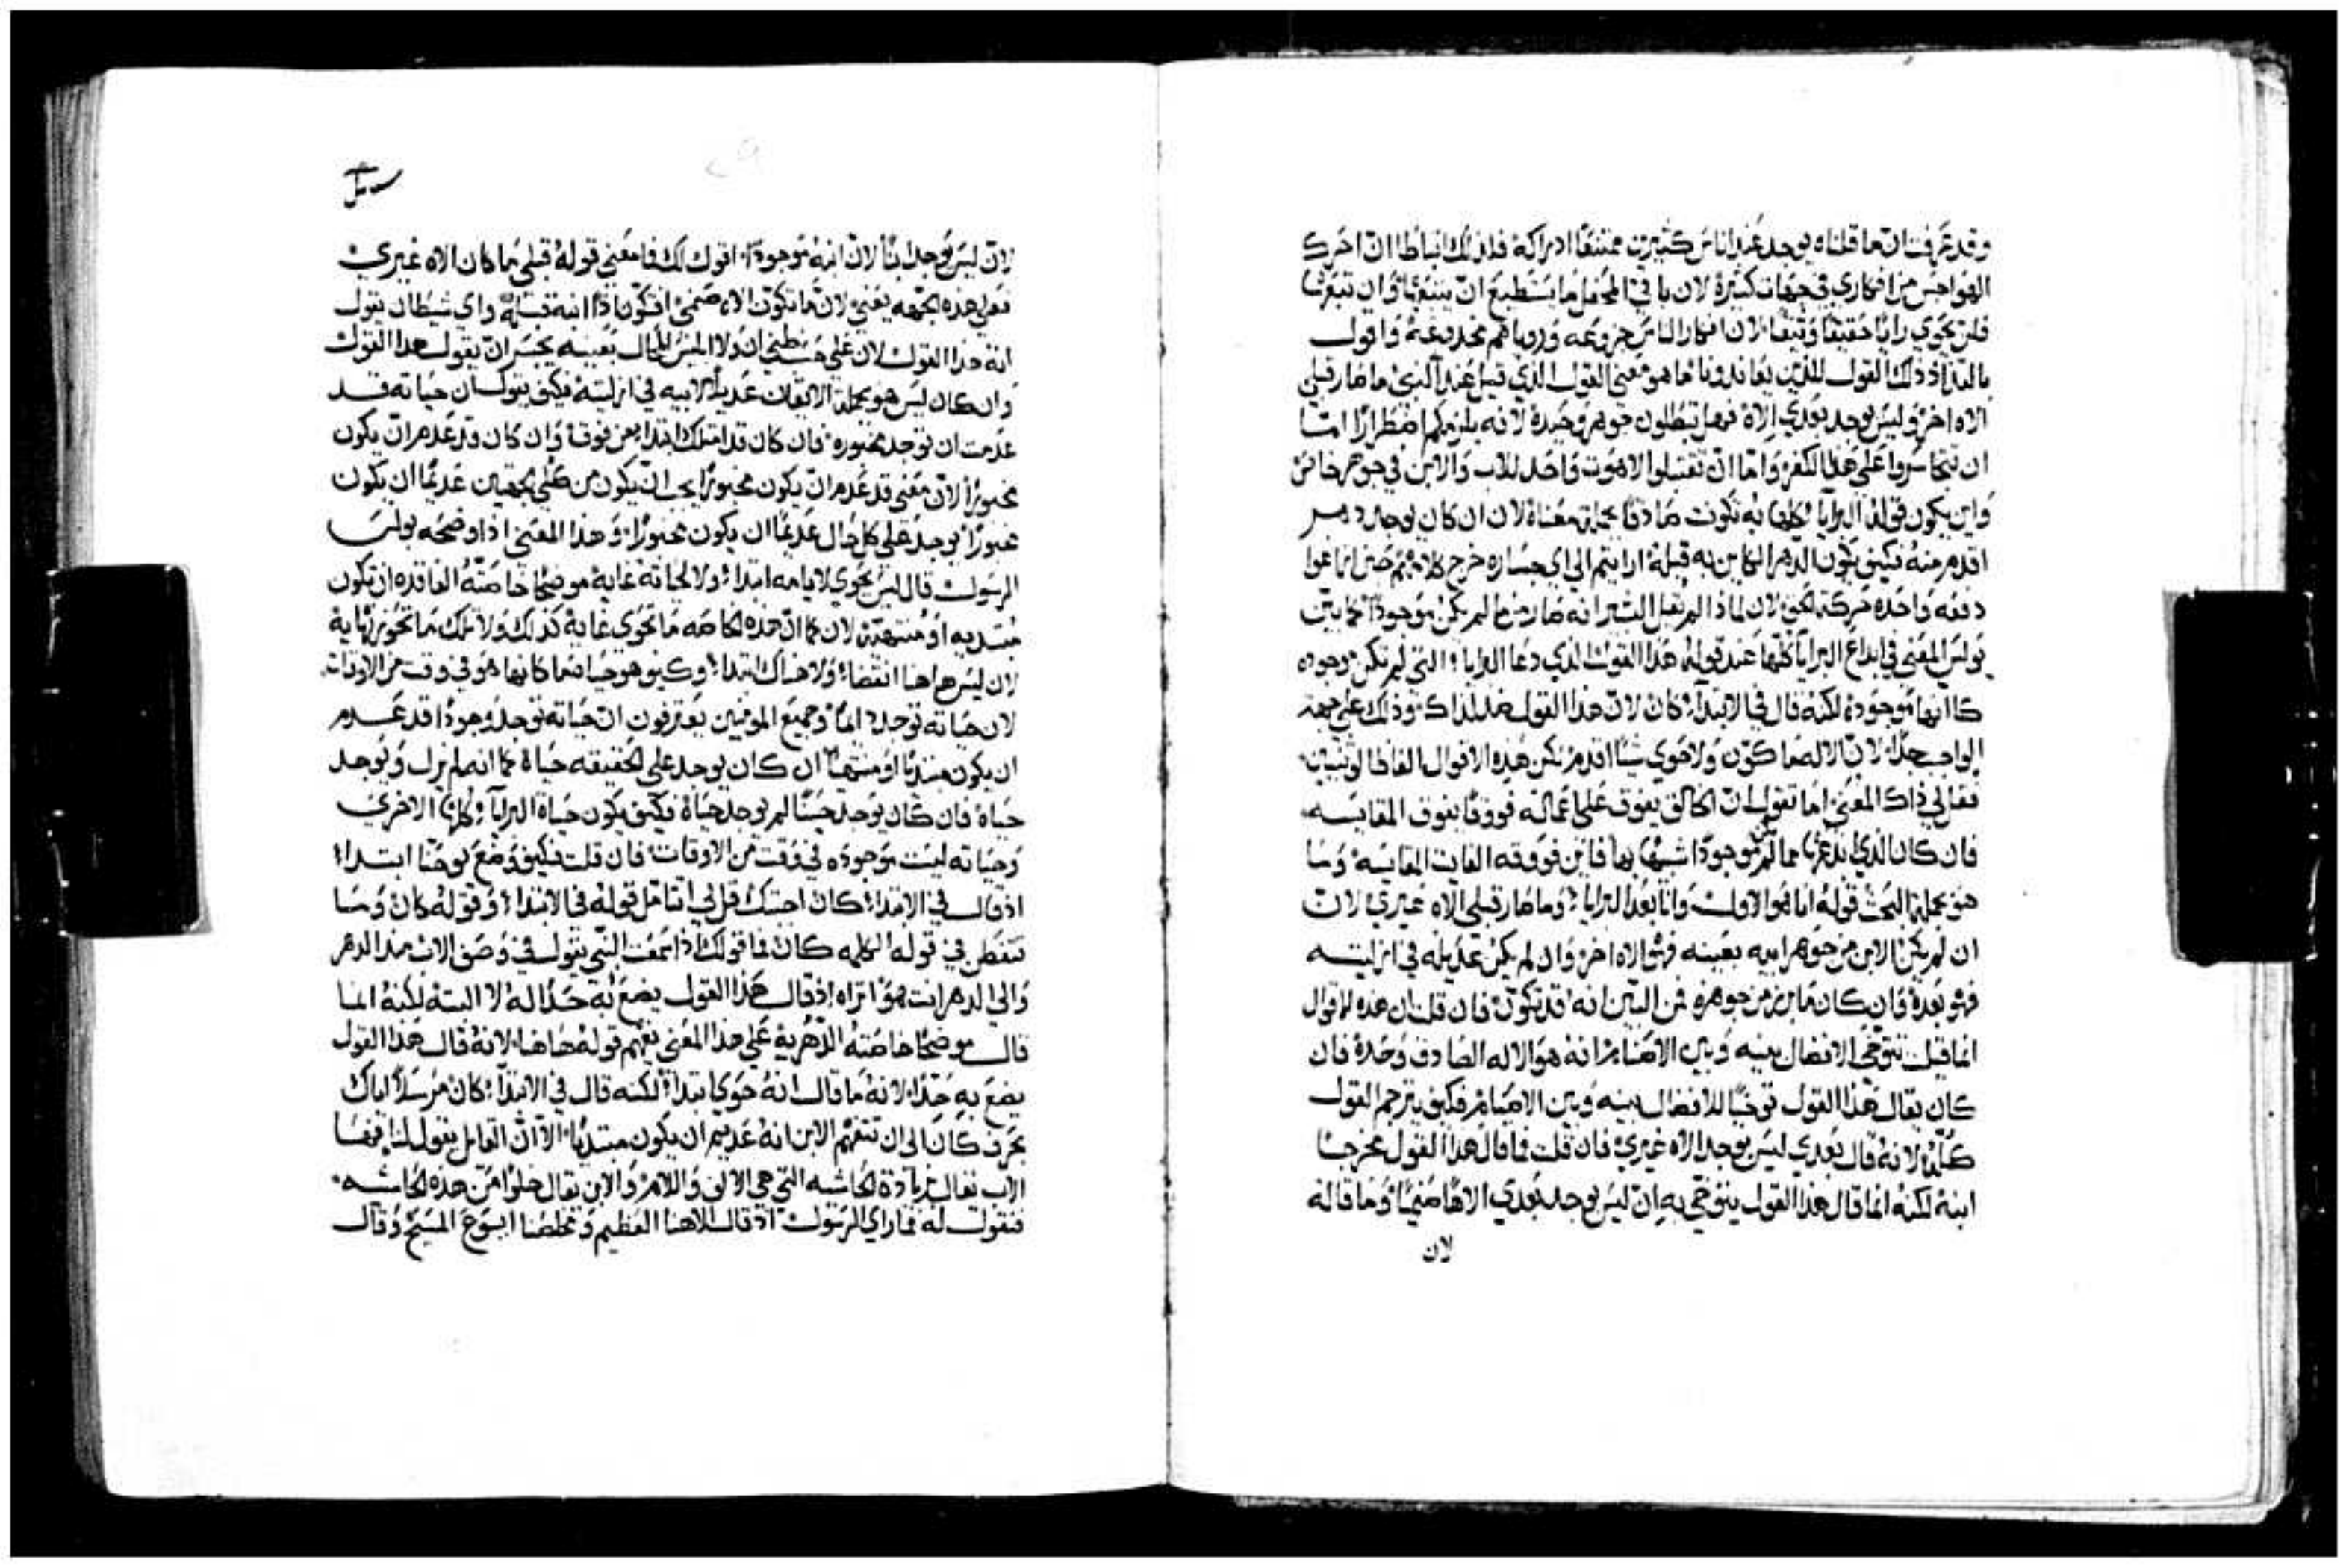 وقد عرفت ان ما قلناه يوجد عند اناس كثيرين ممتنعًا ادراكه فلذلك انباطا انّ احرك
الهواجس من افكاري في جهات كثيرة لان باقي المحفل ما يستطيع انّ يتبعها وان تبعها
فلن يحوي رايًا حقيقًا وثيقًا لان افكار الناس جزوعه ورويا هم مخدوعة واقول
بالعدا ذلك القول للذين يعاندونا ما هو معنى القول الذي قيل عند النبي ما صار قبلي
الاه اخر وليس يوجد بعدي الاه فهل تبطلون جوهر وحيده لانه يلزمكم اضطرارًا امّا
ان تتجاسروا على هذا الكفر وامّا انّ تقتبلوا لاهوت واحد للاب والابن في جوهر خاص
واين يكون قوله البرايا كلها به تكونت صادقًا بجملة معناه لان ان كان يوجد دهر
اقدم منه فكيف يكون الدهر الكاين به قبله ارايتم الي اي جساره خرج كلامهم حين زاغوا
دفعه واحده من كلمة الحق لان لماذا لم يقل البشير انه صار مما لم يكن موجودًا كما بيّن
بولس المعني في ابداع البرايا كلها عند قوله هذا القول الذي دعا البرايا التي لم تكن موجوده
كانها موجودة لكنه قال في الابتدا كان لان هذا القول ضد لذاك وذلك على جهة
الواجب جدًا لان الاله ما كوّن ولا حوي شيًا اقدم لكن هذه الاقوال الفاظ الوثنيين
فقل لي ذاك المعنى اما تقول ان الخالق يفوق على اعماله فووقًا يفوق المقايسه
فان كان الذي ابدعها مما لم يكن موجودًا شبيهًا بها فاين فووقه الفايت المقايسه وما
هو بجملة البحث قوله انا هو الاول وانا بعد البرايا وما صار قبلي الاه غيري لان
ان لم يكن الابن من جوهر ابيه بعينه فهو الاه اخر وان لم يكن عديله في ازليته
فهو بعده وان كان ما برز من جوهره فمن البيّن انه قد تكوّن فان قلت ان هذه الاقوال
انما قيلت تتوخي الانفصال بينه وبين الاصنام انه هو الاله الصادق وحده فان
كان يقال هذا القول توخيًا للانفصال بينه وبين الاصنام فكيف يترجم القول
كلّه لانه قال بعدي ليس يوجد الاه غيري فان قلت فما قال هذا القول مخرجًا
ابنه لكنه انما قال هذا القول يتوخي به ان ليس يوجد بعدي الاهًا صنميًا وما قاله
لان
لان ليس يوجد ابنًا لانّ ابنه موجودًا اقول لك فما معنى قوله قبلي ما كان الاه غيري
فعلى هذه الجهه يعني لان ما تكوّن الاه صنمي افتكون اذا ابنه قبله واي شيطان يقول
ابنه هذا القول لان على حسب ظني ان ولا ابليس المحال بعينه يجسر ان يقول هذا القول
وان كان ليس هو بجملة الاتفاق عديلًا لابيه في ازليته فكيف يقول ان حياته قد
عدمت ان توجد مخبوره فان كان قد امتلك ابتداء من فوق وان كان قد عدم ان يكون
مخبورًا لان معنى قد عدم ان يكون مخبورًا يجب ان يكون من كلي الجهتين عديمًا ان يكون
مخبورًا يوجد على كل حال عديمًا ان يكون مخبورًا وهذا المعنى اذ اوضحه بولس
الرسول قال ليس يحوي لايامه ابتداء ولا لحياته غاية موضحًا خاصّته الفاقده ان تكون
مبتديه او منتهية لان كما انّ هذه الخاصه ما تحوي غاية كذلك ولا تلك ما تحوز نهاية
لان ليس هاهنا انقضا ولا هناك ابتدا وكيف هو حيا ما كان هو في وقت من الاوقات
لان حياته توجد دايمًا وجميع المومنين يعترفون انّ حياته توجد وجودًا قد عدم
ان يكون مبتديًا او منتهيًا ان كان يوجد على الحقيقه حياة كما انه لم يزل ويوجد
حياه فان كان يوجد حينًا لم يوجد حياة فكيف يكون حياة البرايا كلها الاخرى
وحياته ليست موجوده في وقت من الاوقات فان قلت فكيف وضع يوحنا ابتداء
اذ قال في الابتدا كان اجبتك قل لي اتتامل قوله في الابتدا وقوله كان وما
تتفطن في قوله الكلمه كان فما قولك اذا سمعت النبي يقول في وصف الاب منذ الدهر
والي الدهر انت هو اتراه اذ قال هذا القول يضع به حدًا له لا البتة لكنه انما
قال موضحًا خاصته الدهرية على هذا المعنى تفهم قوله هاهنا لانه قال هذا القول
يضع به حدًا لانه ما قال انه حوي ابتدا لكنه قال في الابتدا كان مرسلًا اياك
بحرف كان الي ان تتفهم الابن انه عديم ان يكون مبتديًا الا انّ القايل يقول لنا فها
الاب يقال بزيادة الحاشيه التي هي الالف واللام والابن يقال خلوًا من هذه الحاشيه
فنقول له فما راي الرسول اذ قال الاهنا العظيم ومخلصنا ايسوع المسيح وقال